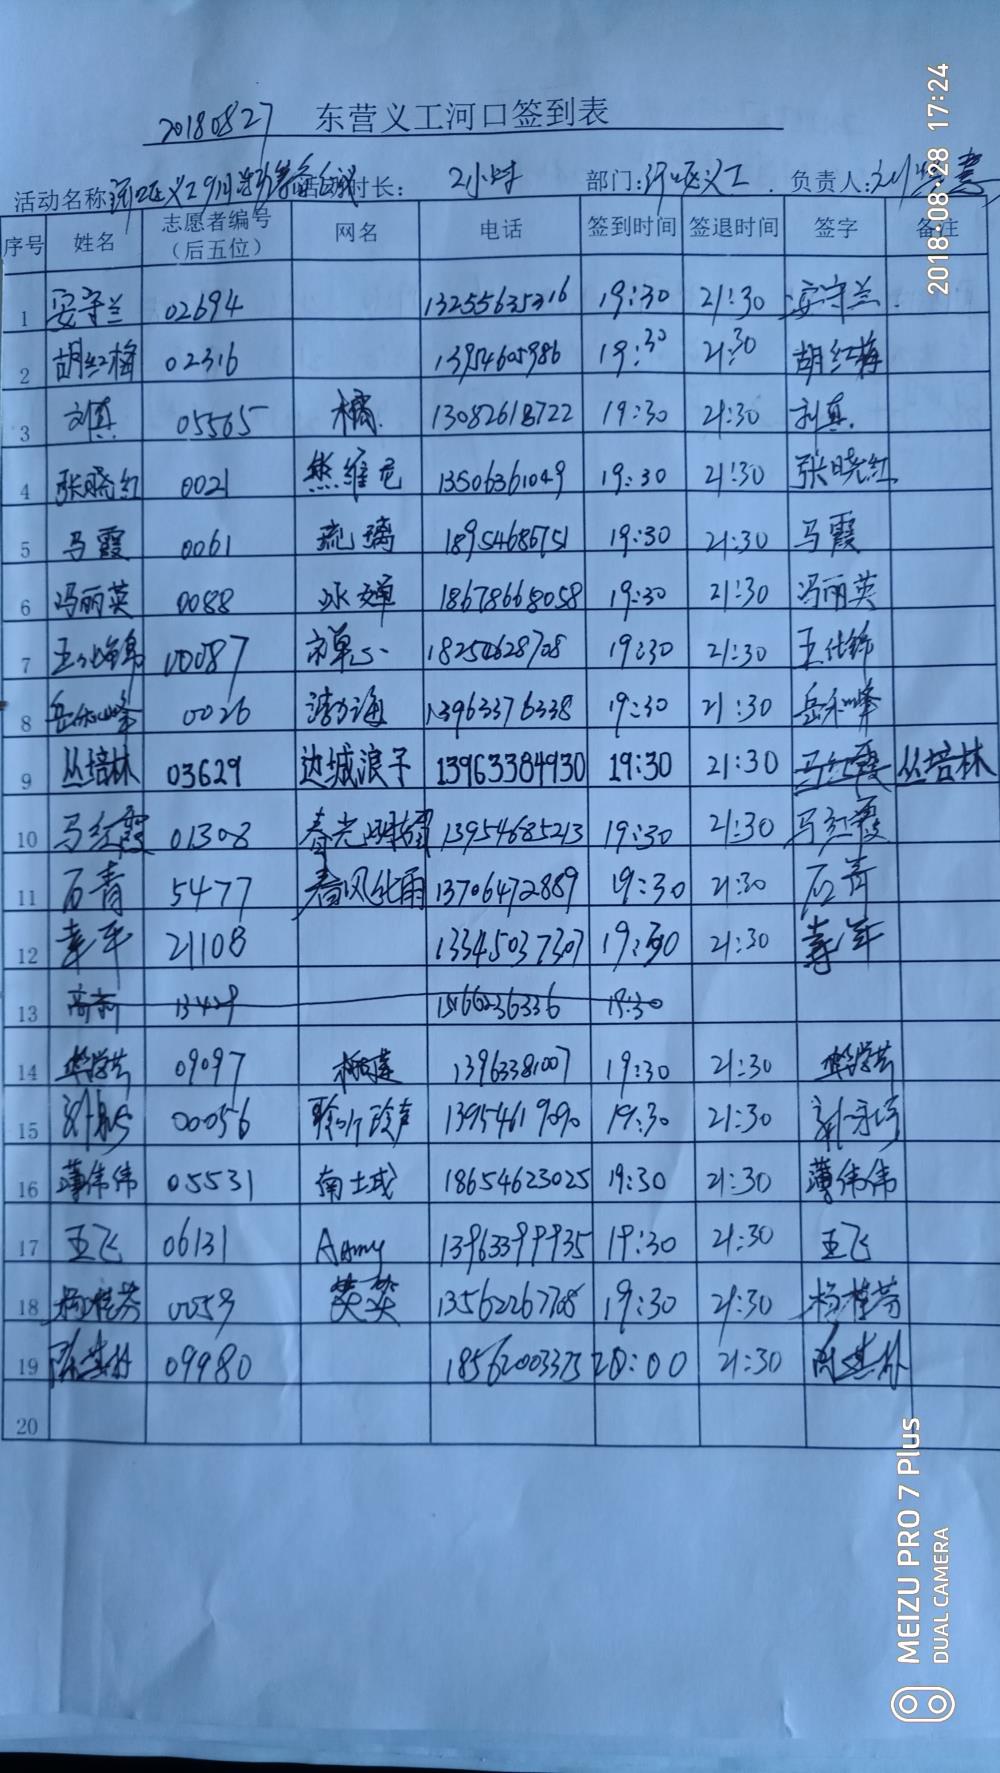 20180827 东营义工河口签到表
活动名称: 时长: 2小时 部门: 河口区义工 负责人:
序号 姓名 志愿者编号（后五位） 网名 电话 签到时间 签退时间 签字 备注
1 安守兰 02694 13255635316 19:30 21:30 安守兰
2 胡红梅 02316 13954605986 19:30 21:30 胡红梅
3 刘真 05565 橘 13082618722 19:30 21:30 刘真
4 张晓红 0021 熊维尼 13506361049 19:30 21:30 张晓红
5 马霞 0061 琉璃 18954686751 19:30 21:30 马霞
6 冯丽英 0088 冰婵 18678668058 19:30 21:30 冯丽英
7 00087 18254628708 19:30 21:30 王仕锦
8 岳和峰 0026 13963376338 19:30 21:30 岳和峰
9 丛培林 03629 边城浪子 13963384930 19:30 21:30 马红霞 丛培林
10 马红霞 01308 春光明媚 13954685213 19:30 21:30 马红霞
11 石青 5477 春风化雨 13706472889 19:30 21:30 石青
12 21108 13345037307 19:30 21:30
13 13429 15166236336 19:30
14 09097 13963381007 19:30 21:30
15 00056 聆听 声 13954619090 19:30 21:30
16 薄伟伟 05531 南土城 18654623025 19:30 21:30 薄伟伟
17 王飞 06131 Aamy 13963399935 19:30 21:30 王飞
18 杨桂芬 0059 13562267708 19:30 21:30 杨桂芬
19 09980 18562003375 20:00 21:30
20
2018-08-28 17:24
MEIZU PRO 7 Plus
DUAL CAMERA